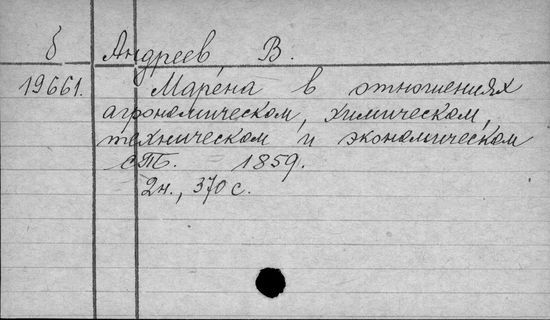 б Андреев, В.
19661. Маре́на в отношениях
агрономическом, химическом,
техническом и экономическом
СТб. 1859.
2н., 370 с.